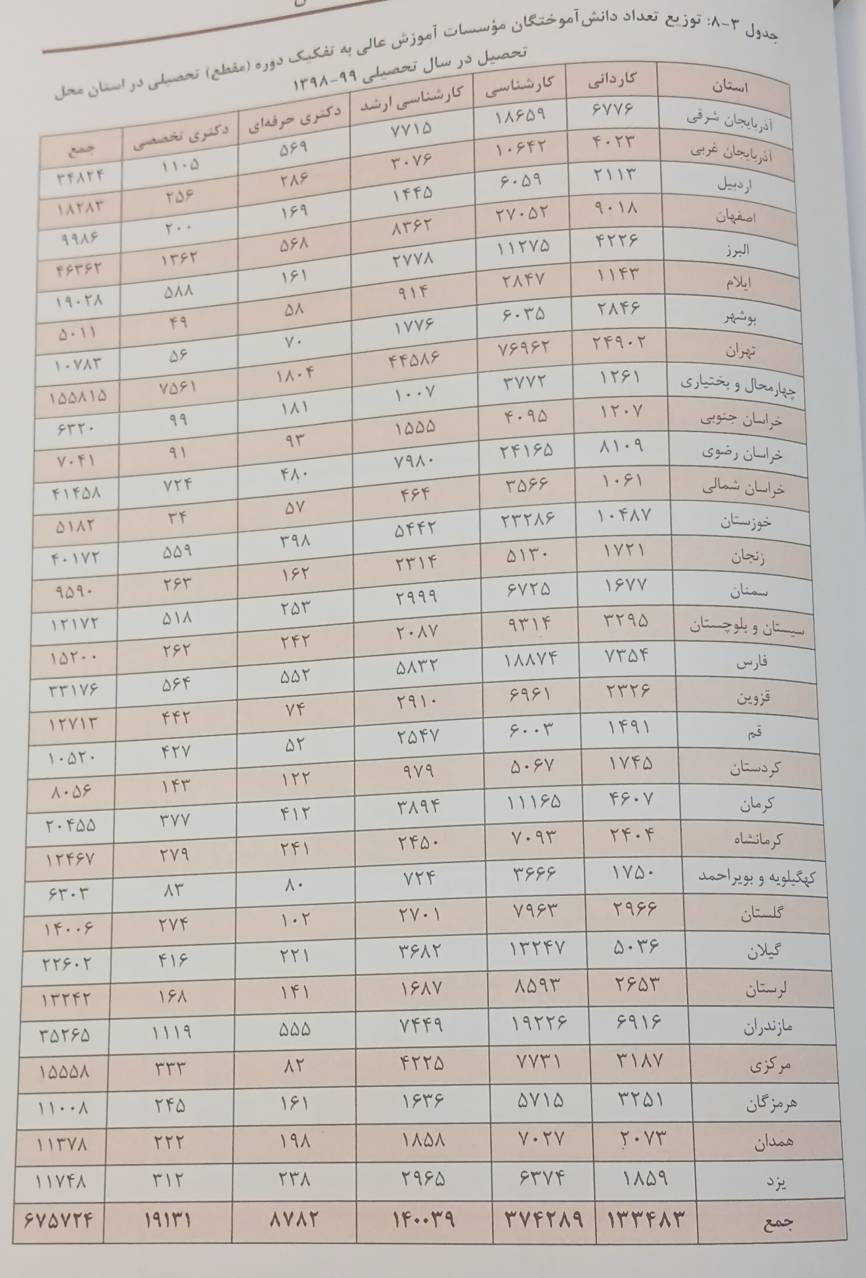 جدول ۳-۸: توزیع تعداد دانش‌آموختگان آموزش عالی مؤسسات به تفکیک دوره (مقطع) تحصیلی در استان محل
تحصیل در سال تحصیلی ۹۹-۱۳۹۸
استان کاردانی کارشناسی کارشناسی ارشد دکتری حرفه‌ای دکتری تخصصی جمع
آذربایجان شرقی ۶۷۷۶ ۱۸۶۵۹ ۷۷۱۵ ۵۶۹ ۱۱۰۵ ۳۴۸۲۴
آذربایجان غربی ۴۰۲۳ ۱۰۶۴۲ ۳۰۷۶ ۲۸۶ ۲۵۶ ۱۸۲۸۳
اردبیل ۲۱۱۳ ۶۰۵۹ ۱۴۴۵ ۱۶۹ ۲۰۰ ۹۹۸۶
اصفهان ۹۰۱۸ ۲۷۰۵۲ ۸۳۶۲ ۵۶۸ ۱۳۶۲ ۴۶۳۶۲
البرز ۴۲۲۶ ۱۱۲۷۵ ۲۷۷۸ ۱۶۱ ۵۸۸ ۱۹۰۲۸
ایلام ۱۱۴۳ ۲۸۴۷ ۹۱۴ ۵۸ ۴۹ ۵۰۱۱
بوشهر ۲۸۴۶ ۶۰۳۵ ۱۷۷۶ ۷۰ ۵۶ ۱۰۷۸۳
تهران ۲۴۹۰۲ ۷۶۹۶۲ ۴۴۵۸۶ ۱۸۰۴ ۷۵۶۱ ۱۵۵۸۱۵
چهارمحال و بختیاری ۱۲۶۱ ۳۷۷۲ ۱۰۰۷ ۱۸۱ ۹۹ ۶۳۲۰
خراسان جنوبی ۱۲۰۷ ۴۰۹۵ ۱۵۵۵ ۹۳ ۹۱ ۷۰۴۱
خراسان رضوی ۸۱۰۹ ۲۴۱۶۵ ۷۹۸۰ ۴۸۰ ۷۲۴ ۴۱۴۵۸
خراسان شمالی ۱۰۶۱ ۳۵۶۶ ۴۶۴ ۵۷ ۳۴ ۵۱۸۲
خوزستان ۱۰۴۸۷ ۲۳۲۸۶ ۵۴۴۲ ۳۹۸ ۵۵۹ ۴۰۱۷۲
زنجان ۱۷۲۱ ۵۱۳۰ ۲۳۱۴ ۱۶۲ ۲۶۳ ۹۵۹۰
سمنان ۱۶۷۷ ۶۷۲۵ ۲۹۹۹ ۲۵۳ ۵۱۸ ۱۲۱۷۲
سیستان و بلوچستان ۳۲۹۵ ۹۳۱۴ ۲۰۸۷ ۲۴۲ ۲۶۲ ۱۵۲۰۰
فارس ۷۳۵۴ ۱۸۸۷۴ ۵۸۳۲ ۵۵۲ ۵۶۴ ۳۳۱۷۶
قزوین ۲۳۲۶ ۶۹۶۱ ۲۹۱۰ ۷۴ ۴۴۲ ۱۲۷۱۳
قم ۱۴۹۱ ۶۰۰۳ ۲۵۴۷ ۵۲ ۴۲۷ ۱۰۵۲۰
کردستان ۱۷۴۵ ۵۰۶۷ ۹۷۹ ۱۲۲ ۱۴۳ ۸۰۵۶
کرمان ۴۶۰۷ ۱۱۱۶۵ ۳۸۹۴ ۴۱۲ ۳۷۷ ۲۰۴۵۵
کرمانشاه ۲۴۰۴ ۷۰۹۳ ۲۴۵۰ ۲۴۱ ۲۷۹ ۱۲۴۶۷
کهگیلویه و بویراحمد ۱۷۵۰ ۳۶۶۶ ۷۲۴ ۸۰ ۸۳ ۶۳۰۳
گلستان ۲۹۶۶ ۷۹۶۳ ۲۷۰۱ ۱۰۲ ۲۷۴ ۱۴۰۰۶
گیلان ۵۰۳۶ ۱۳۲۴۷ ۳۶۸۲ ۲۲۱ ۴۱۶ ۲۲۶۰۲
لرستان ۲۶۵۳ ۸۵۹۳ ۱۶۸۷ ۱۴۱ ۱۶۸ ۱۳۲۴۲
مازندران ۶۹۱۶ ۱۹۲۲۶ ۷۴۴۹ ۵۵۵ ۱۱۱۹ ۳۵۲۶۵
مرکزی ۳۱۸۷ ۷۷۳۱ ۴۲۲۵ ۸۲ ۳۳۳ ۱۵۵۵۸
هرمزگان ۳۲۵۱ ۵۷۱۵ ۱۶۳۶ ۱۶۱ ۲۴۵ ۱۱۰۰۸
همدان ۲۰۷۳ ۷۰۲۷ ۱۸۵۸ ۱۹۸ ۲۲۲ ۱۱۳۷۸
یزد ۱۸۵۹ ۶۳۷۴ ۲۹۶۵ ۲۳۸ ۳۱۲ ۱۱۷۴۸
جمع ۱۳۳۴۸۳ ۳۷۴۲۸۹ ۱۴۰۰۳۹ ۸۷۸۲ ۱۹۱۳۱ ۶۷۵۷۲۴